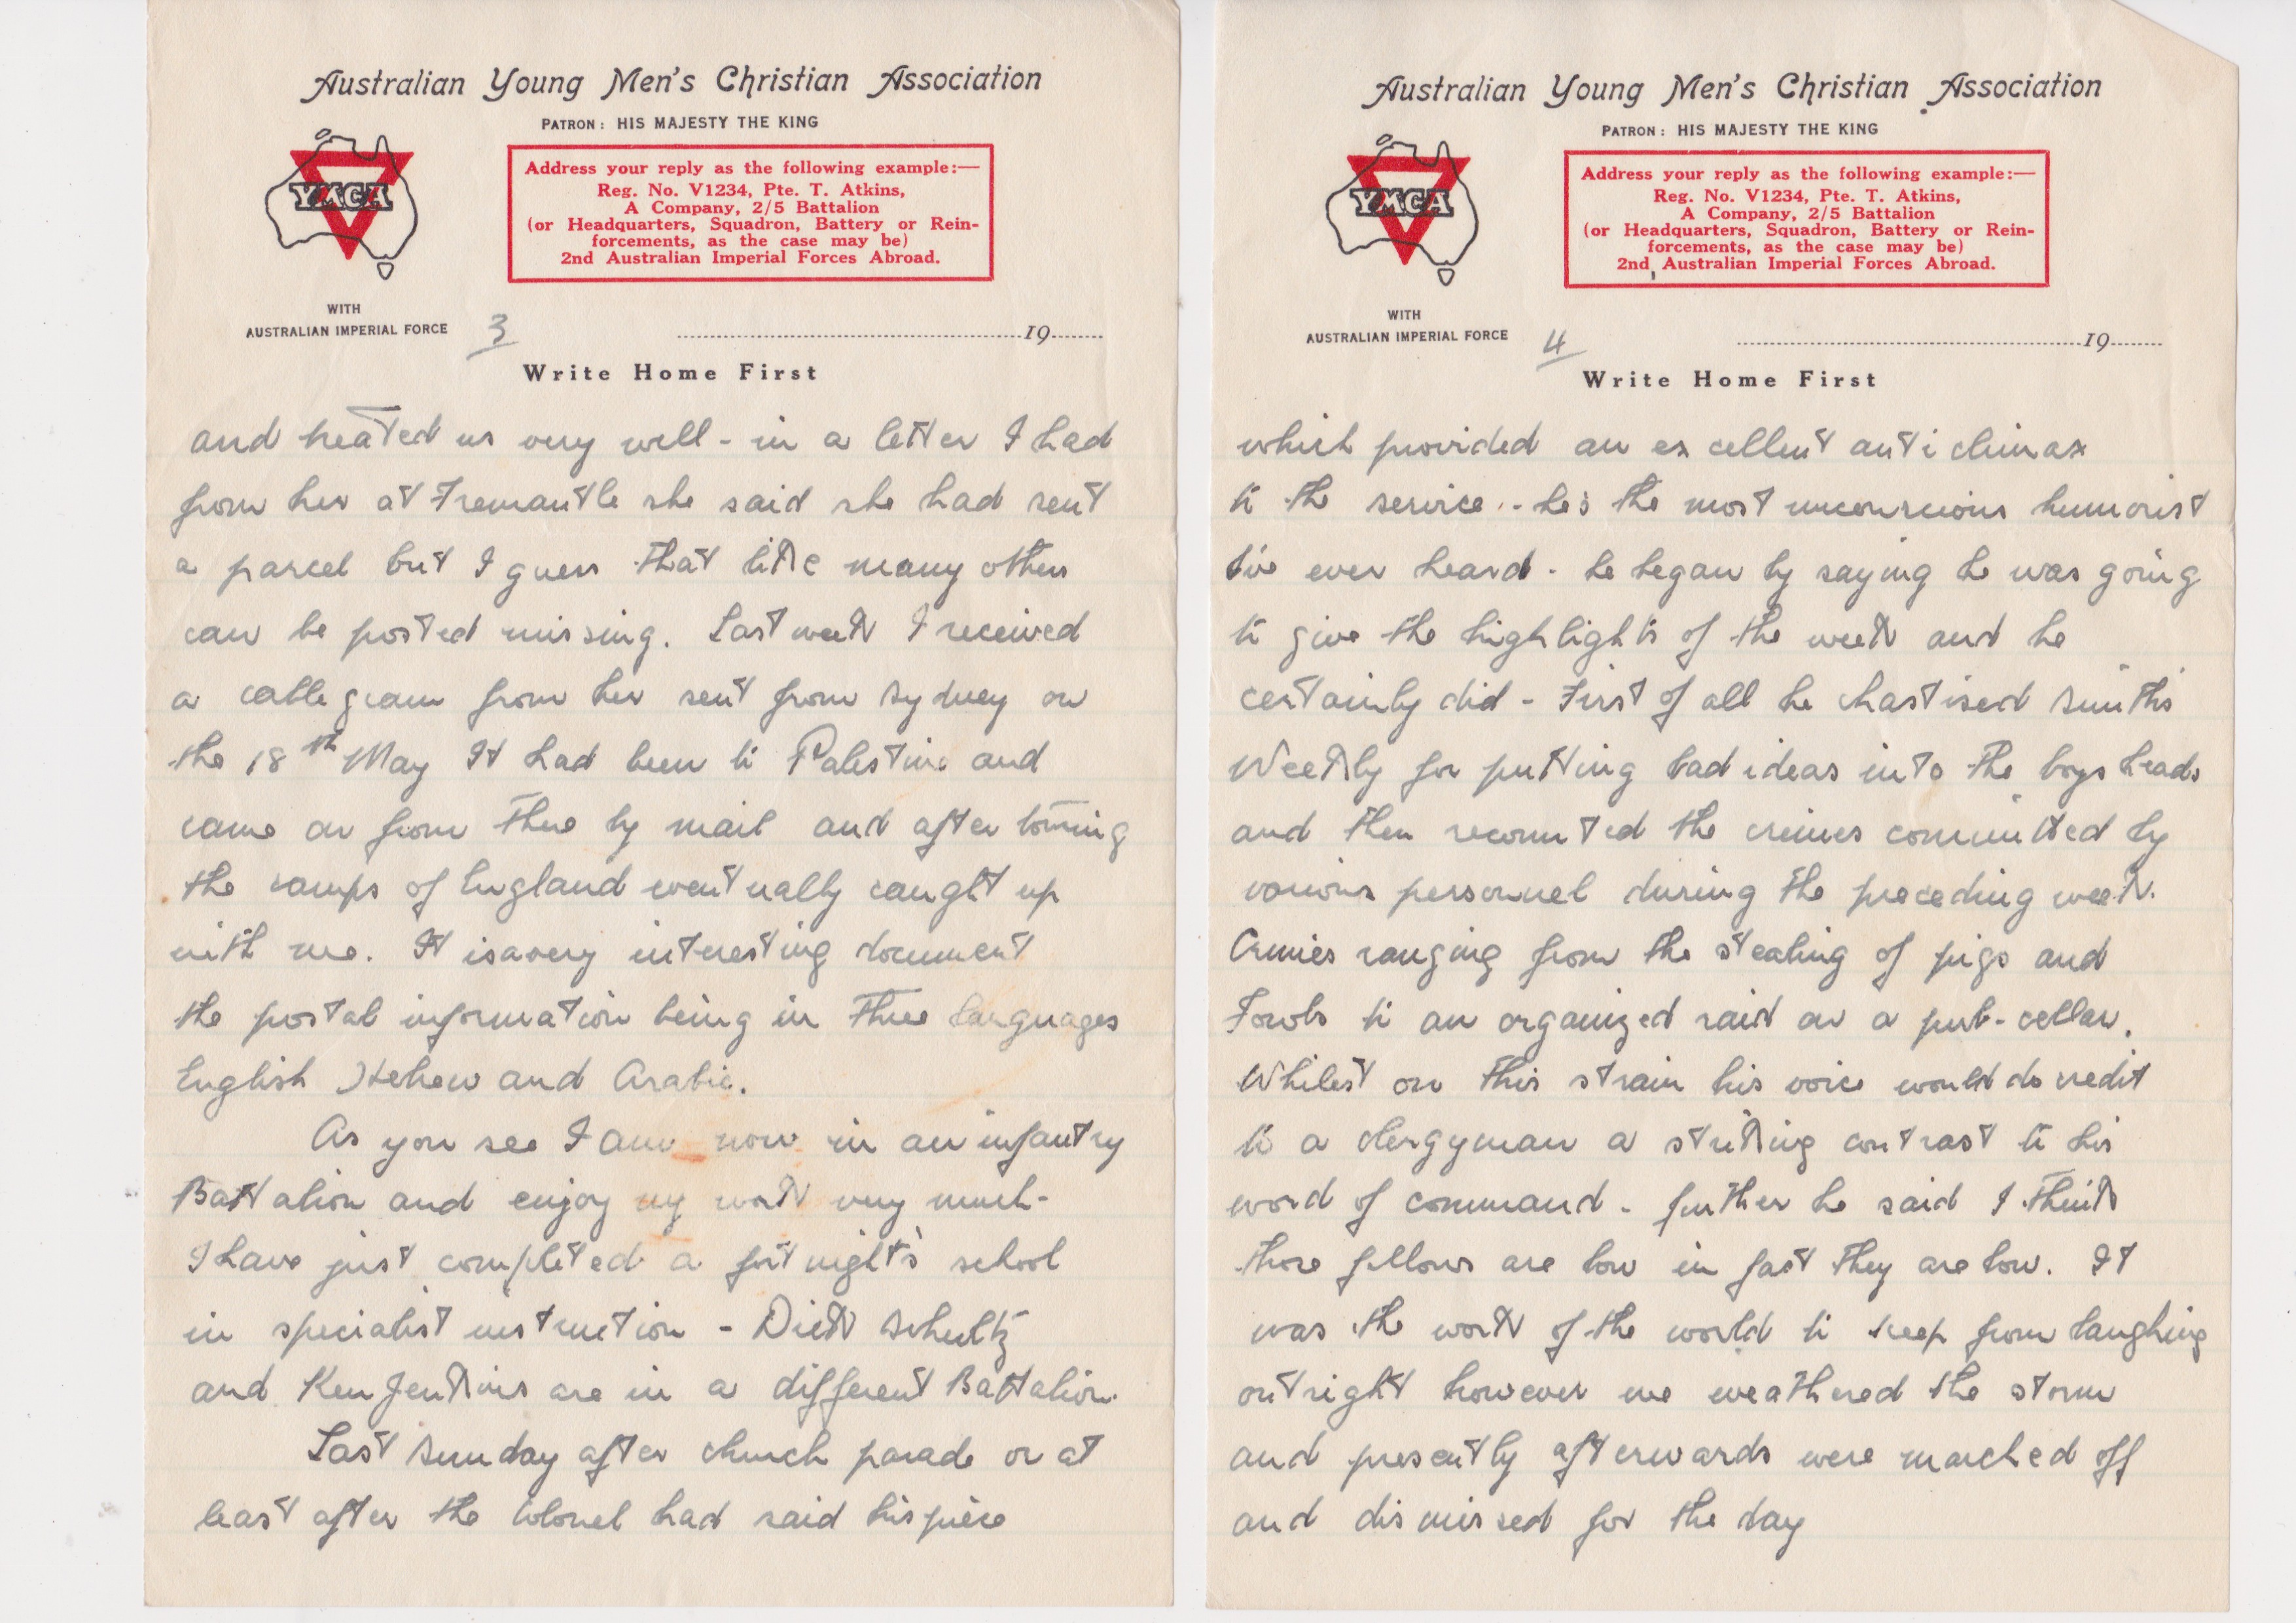 Australian Young Men's Christian Association
PATRON: HIS MAJESTY THE KING
YMCA
Address your reply as the following example:—
Reg. No. V1234, Pte. T. Atkins,
A Company, 2/5 Battalion
(or Headquarters, Squadron, Battery or Rein-
forcements, as the case may be)
2nd Australian Imperial Forces Abroad.
WITH
AUSTRALIAN IMPERIAL FORCE
3
19
Write Home First
and treated us very well - in a letter I had
from her at Fremantle she said she had sent
a parcel but I guess that like many others
can be posted missing. Last week I received
a cable gram from her sent from Sydney on
the 18th May It had been to Palestine and
came on from there by mail and after touring
the camps of England eventually caught up
with me. It is a very interesting document
the postal information being in three languages
English Hebrew and Arabic.
As you see I am now in an infantry
Battalion and enjoy my work very much-
I have just completed a fortnight's school
in specialist instruction - Dick Schultz
and Ken Jenkins are in a different Battalion.
Last Sunday after church parade or at
least after the Colonel had said his piece
Australian Young Men's Christian Association
PATRON: HIS MAJESTY THE KING
YMCA
Address your reply as the following example:—
Reg. No. V1234, Pte. T. Atkins,
A Company, 2/5 Battalion
(or Headquarters, Squadron, Battery or Rein-
forcements, as the case may be)
2nd Australian Imperial Forces Abroad.
WITH
AUSTRALIAN IMPERIAL FORCE
4
19
Write Home First
which provided an excellent anti climax
to the service.. he's the most unconscious humorist
I've ever heard - he began by saying he was going
to give the highlights of the week and he
certainly did - First of all he chastised Smith's
Weekly for putting bad ideas into the boys heads
and then recounted the crimes committed by
various personnel during the preceding week.
Crimes ranging from the stealing of pigs and
Fowls to an organized raid on a pub-cellar.
Whilest on this strain his voice would do credit
to a clergyman a striking contrast to his
word of command - further he said I think
those fellows are low in fact they are low. It
was the work of the world to keep from laughing
outright however we weathered the storm
and presently afterwards were marched off
and dismissed for the day